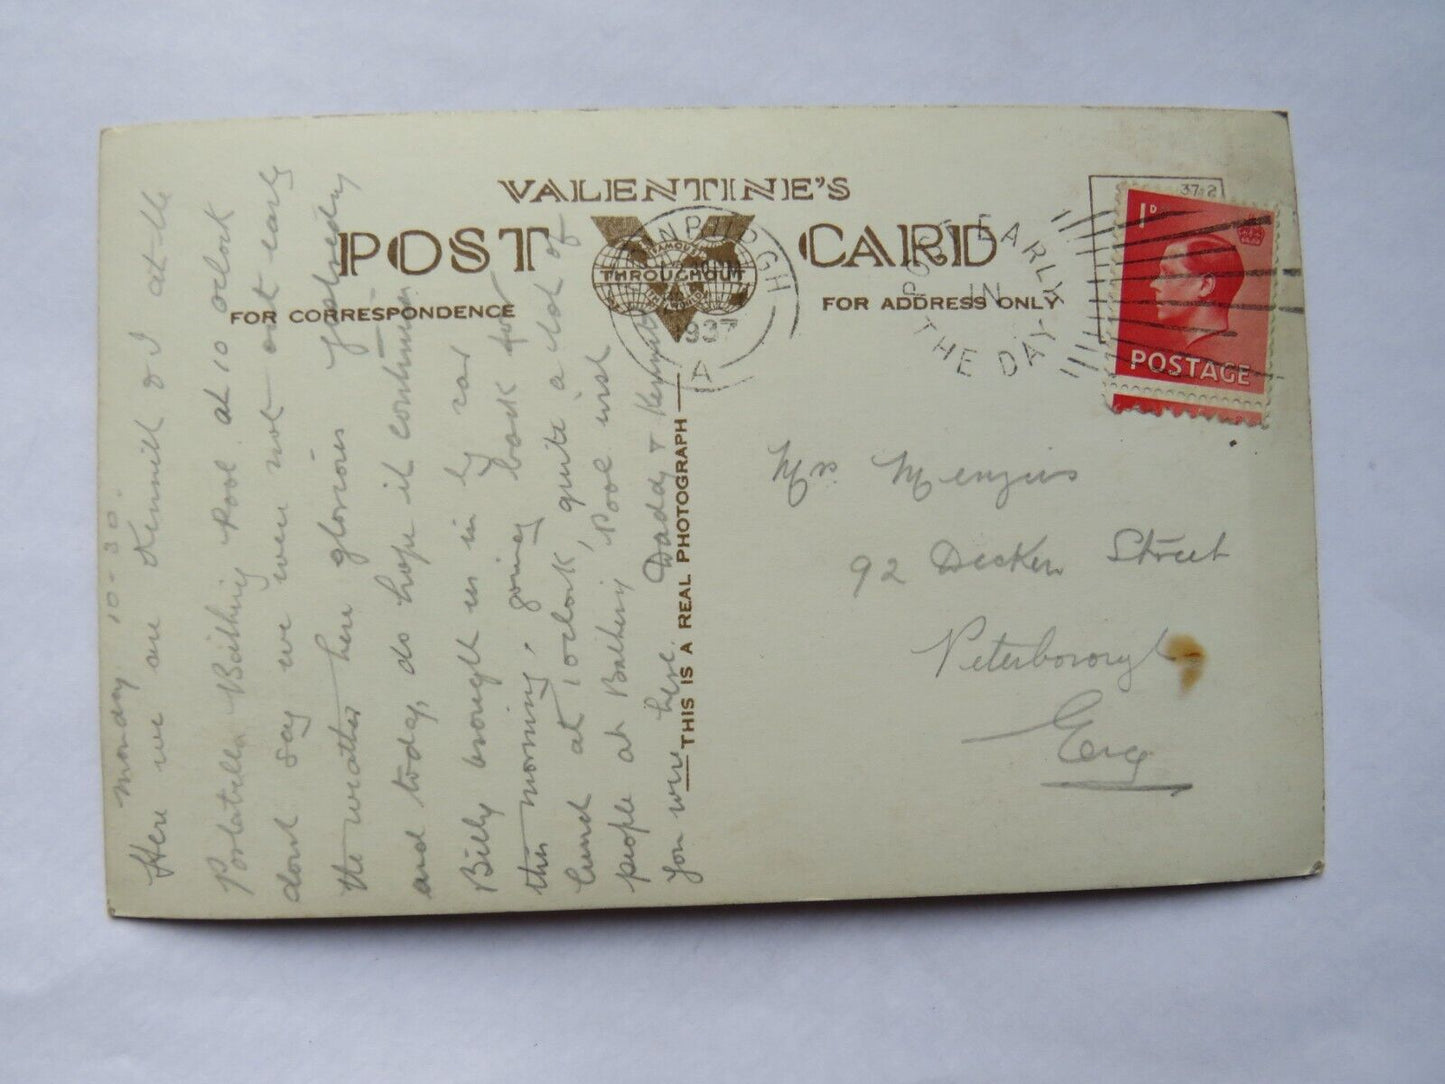 VALENTINE'S
POST CARD
FAMOUS
THROUGHOUT
THE WORLD
FOR CORRESPONDENCE
FOR ADDRESS ONLY
THIS IS A REAL PHOTOGRAPH
937
A
POST EARLY
IN
THE DAY
1D
POSTAGE
Monday 10-30.
Here we are Kenneth & I at the
Portabella Bathing Pool at 10 oclock
dont say we were not out early
the weather here glorious yesterday
and today, do hope it continues
Billy brought us in by car
this morning, going back for
lunch at 1 oclock, quite a lot of
people at Bathing Pool wish
you were here. Daddy & Kenneth
Mrs Menzies
92 Decker Street
Peterborough
Eng